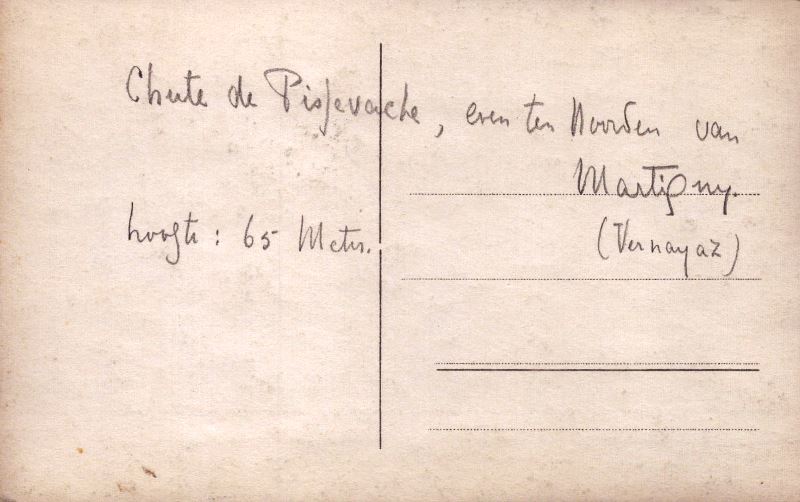 Chute de Pissevache, even ten Noorden van
Martigny.
(Vernayaz)
hoogte: 65 Meter.